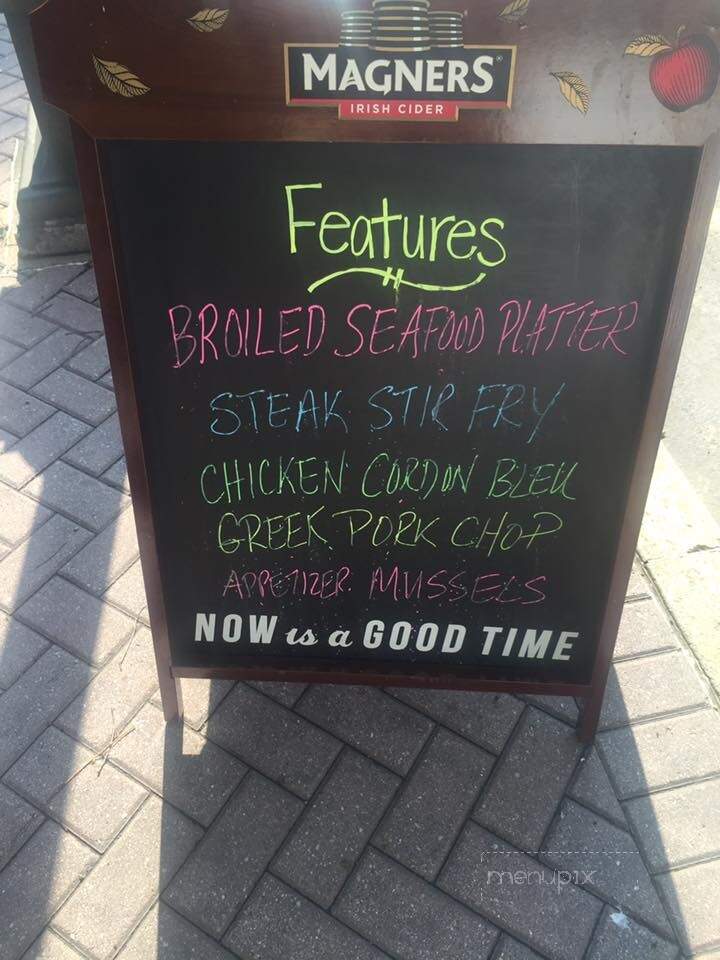 MAGNERS
IRISH CIDER
Features
BROILED SEAFOOD PLATTER
STEAK STIR FRY
CHICKEN CORDON BLEU
GREEK PORK CHOP
APPETIZER. MUSSELS
NOW is a GOOD TIME
menupix